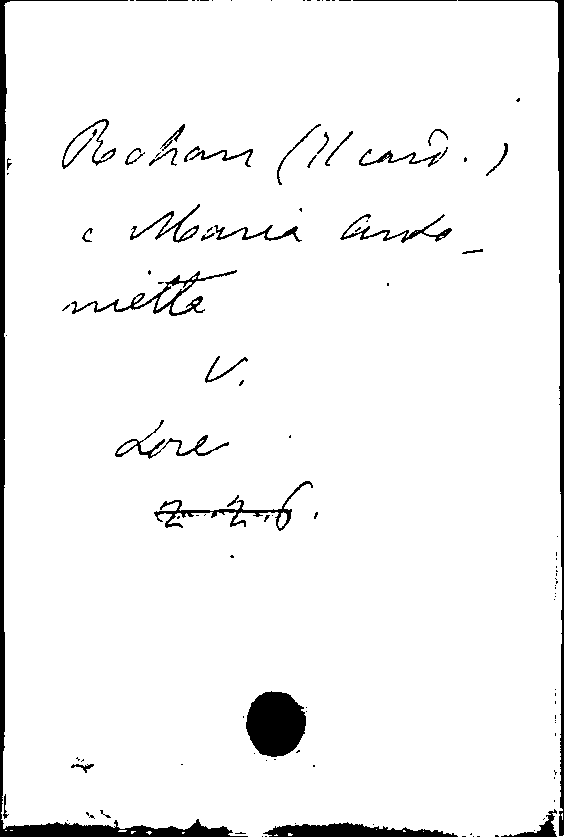 Rohan (Il card.)
e Maria Anto-
nietta
V.
Lore
2. 2. 6.